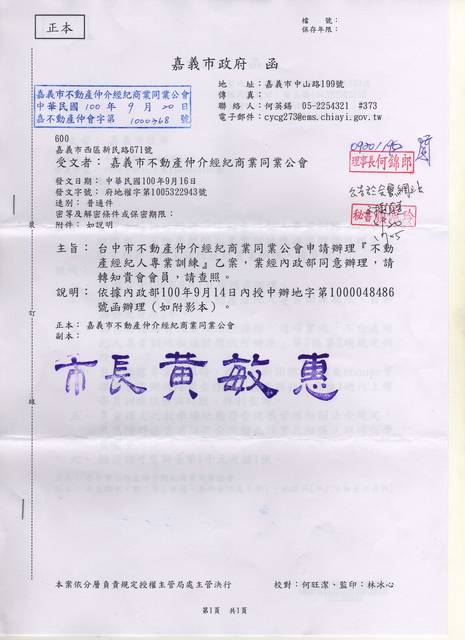 正本
檔　　號：
保存年限：
嘉義市政府　函
嘉義市不動產仲介經紀商業同業公會
中華民國 100 年 9 月 20 日
嘉不動產仲會字第 1000768 號
地　　址：嘉義市中山路199號
傳　　真：
聯 絡 人：何英鍚　05-2254321　#373
電子郵件：cycg273@ems.chiayi.gov.tw
600
嘉義市西區新民路671號
受文者：　嘉義市不動產仲介經紀商業同業公會
理事長何錦郎
發文日期：　中華民國100年9月16日
發文字號：　府地權字第1005322943號
速別：　普通件
密等及解密條件或保密期限：
附件：　如說明
主旨：　台中市不動產仲介經紀商業同業公會申請辦理『不動
產經紀人專業訓練』乙案，業經內政部同意辦理，請
轉知貴會會員，請查照。
說明：　依據內政部100年9月14日內授中辦地字第1000048486
號函辦理（如附影本）。
正本：　嘉義市不動產仲介經紀商業同業公會
副本：
市長黃敏惠
裝
訂
線
本案依分層負責規定授權主管局處主管決行
校對：何旺潔、監印：林冰心
第1頁　共1頁